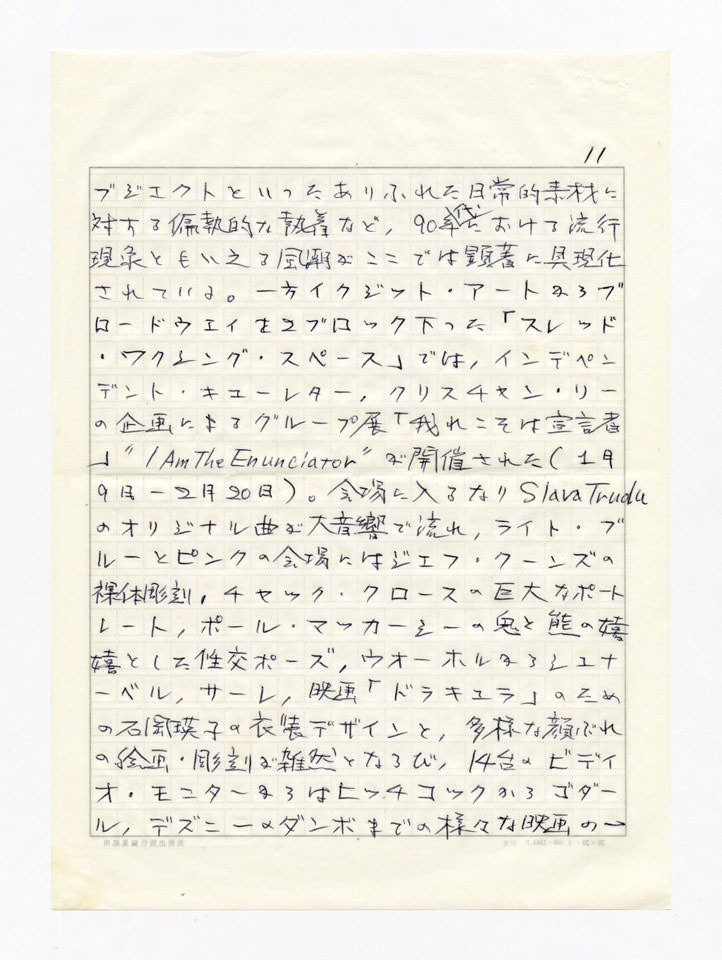 11
ブジェクトといったありふれた日常的素材に
対する偏執的な執着など，90年代における流行
現象ともいえる風潮がここでは顕著に具現化
されている。一方イグジット・アートからブ
ロードウェイを2ブロック下った「スレッド
・ワクシング・スペース」では，インデペン
デント・キューレター，クリスチャン・リー
の企画によるグループ展「我れこそは宣言者
」"I Am The Enunciator"が開催された（1月
9日－2月20日）。会場に入るなりSlava Trudu
のオリジナル曲が大音響で流れ，ライト・ブ
ルーとピンクの会場にはジェフ・クーンズの
裸体彫刻，チャック・クロースの巨大なポート
レート，ポール・マッカーシーの兎と熊の嬉
嬉とした性交ポーズ，ウォーホルからシュナ
ーベル，サーレ，映画「ドラキュラ」のため
の石岡瑛子の衣装デザインと，多様な顔ぶれ
の絵画・彫刻が雑然とならび，14台のビディ
オ・モニターからはヒッチコックからゴダー
ル，デズニーのダンボまでの様々な映画の一